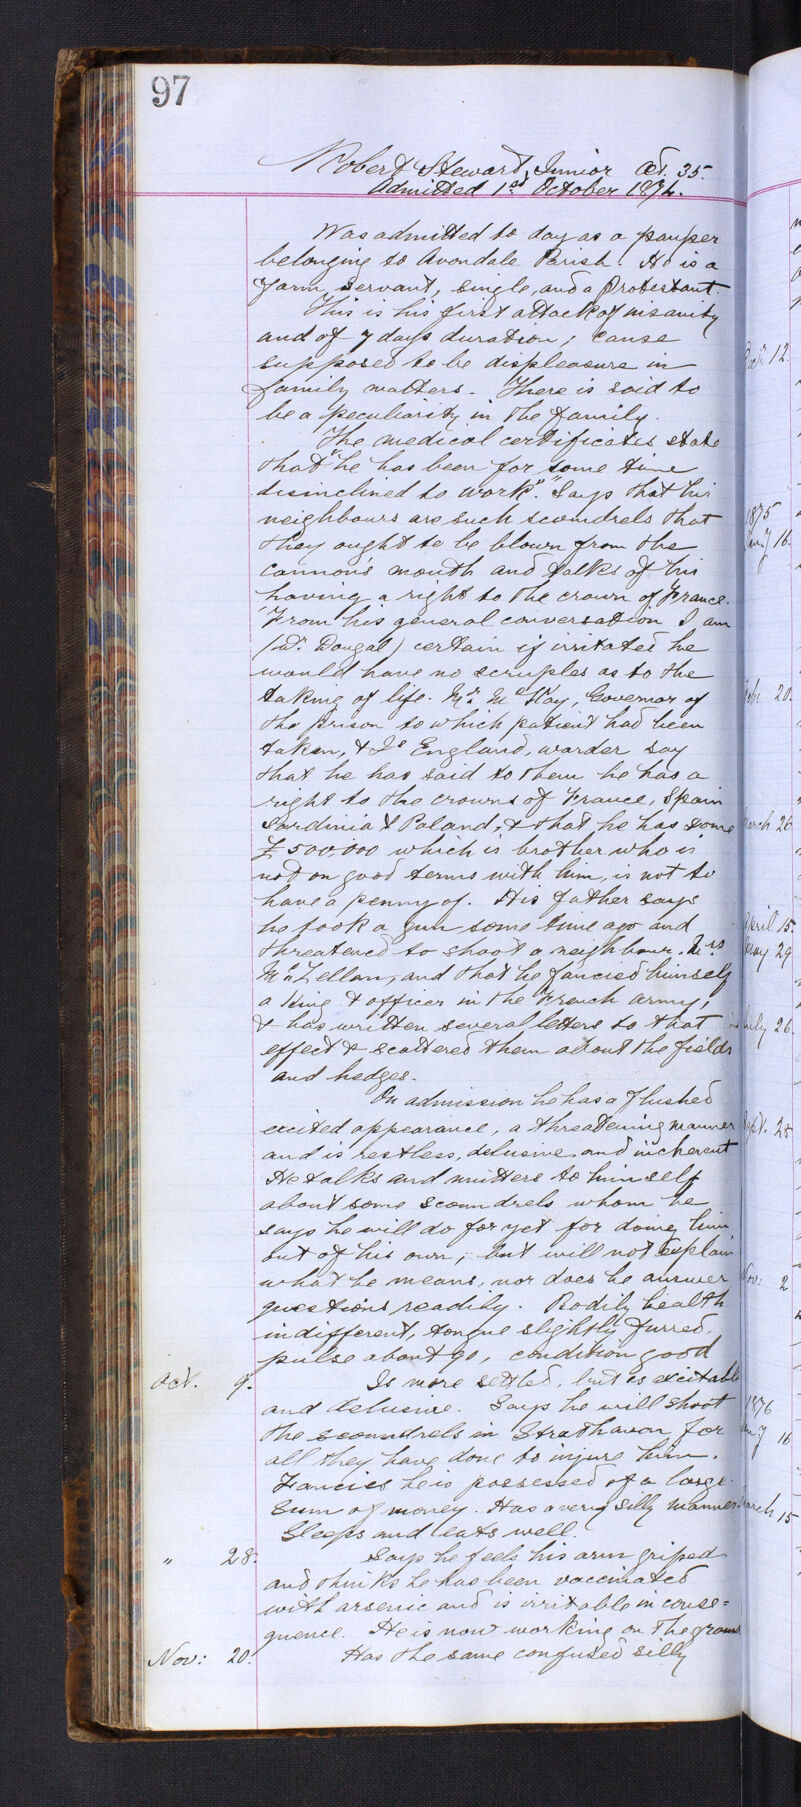 97
Robert Steward, Junior Æt. 35.
Admitted 1st October 1874.
Was admitted to day as a pauper
belonging to Avondale Parish. He is a
farm servant, single, and a Protestant.
This is his first attack of insanity
and of 7 days duration; cause
supposed to be displeasure in
family matters. There is said to
be a peculiarity in the family.
The medical certificates state
that "he has been for some time
disinclined to work". "Says that his
neighbours are such scoundrels that
they ought to be blown from the
cannon's mouth and talks of his
having a right to the crown of France.
"From his general conversation I am
(Dr. Dougal) certain if irritated he
would have no scruples as to the
taking of life. Mr. McKay, Governor of
the prison to which patient had been
taken, & Js England, warder say
that he has said to them he has a
right to the crowns of France, Spain
Sardinia & Poland, & that he has some
£500,000 which is brother who is
not on good terms with him, is not to
have a penny of. His father says
he took a gun some time ago and
threatened to shoot a neighbour, Mrs
McLellan, and that he fancied himself
a King & officer in the French army,
& has written several letters to that
effect & scattered them about the fields
and hedges.
On admission he has a flushed
excited appearance, a threatening manner
and is restless, delusive and incherent
He talks and mutters to himself
about some scoundrels whom he
says he will do for yet for doing him
out of his own; but will not explain
what he means, nor does he answer
questions readily. Bodily health
indifferent, tongue slightly furred,
pulse about 90, condition good
Oct. 9. Is more settled, but is excitable
and delusive. Says he will shoot
the scoundrels in Strathavon for
all they have done to injure him.
Fancies he is possessed of a large
sum of money. Has a very silly manner
Sleeps and eats well.
" 28. Says he feels his arm griped
and thinks he has been vaccinated
with arsenic and is irritable in conse=
quence. He is now working on the
Nov: 20. Has the same confused silly
12.
1875
16.
20.
March 26
April 15.
May 29
July 26.
Sept. 28
Nov: 2
1876
16
March 15